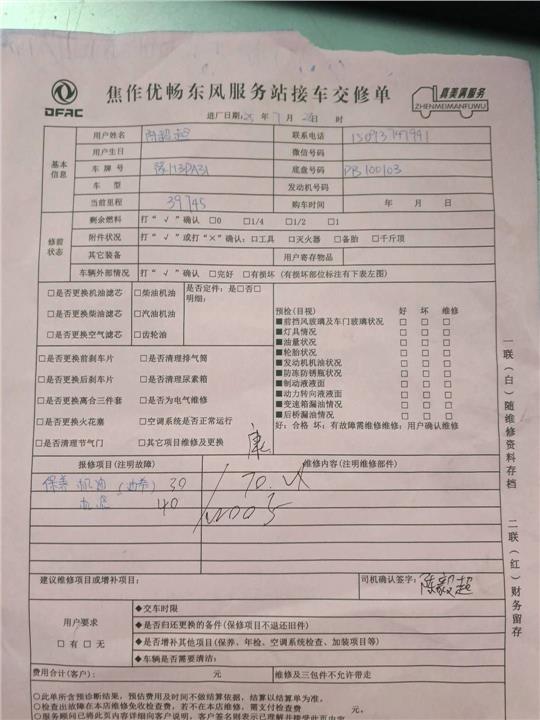 DFAC
焦作优畅东风服务站接车交修单
真美满服务
ZHENMEIMANFUWU
进厂日期:25 年 7 月 日 时
用户姓名 联系电话
基本信息
用户生日 微信号码
车牌号 豫H3DA31 底盘号码 PB100103
车 型 发动机号码
当前里程 39745 购车时间 年 月 日
修前状态
剩余燃料 打“√”确认 □0 □1/4 □1/2 □1
附件状况 打“√”或打“×”确认:□工具 □灭火器 □备胎 □千斤顶
其它装备 用户寄存物品
车辆外部情况 打“√”确认 □完好 □有损坏 (有损坏部位标注有下表左图)
□是否更换机油滤芯 □柴油机油 是否定件:是□否□
明细:
□是否更换柴油滤芯 □汽油机油
□是否更换空气滤芯 □齿轮油
预检(目视) 好 坏 维修
■前挡风玻璃及车门玻璃状况 □ □ □
■灯具情况 □ □ □
■油量状况 □ □ □
■轮胎状况 □ □ □
■发动机机油状况 □ □ □
■防冻防锈瓶状况 □ □ □
■制动液液面 □ □ □
■动力转向液液面 □ □ □
■变速箱漏油情况 □ □ □
■后桥漏油情况 □ □ □
好:合格 坏:有故障需维修维修:用户确认维修
□是否更换前刹车片 □是否清理排气筒
□是否更换后刹车片 □是否清理尿素箱
□是否更换离合三件套 □是否为电气维修
□是否更换火花塞 □空调系统是否正常运行
□是否清理节气门 □其它项目维修及更换
康
报修项目(注明故障) 维修内容(注明维修部件)
保养 机油 30
机滤 40
70.
建议维修项目或增补项目: 司机确认签字: 陈毅超
用户要求
□有 □无
◆交车时限
◆是否归还更换的备件(保修项目不退还旧件)
◆是否增补其他项目(保养、年检、空调系统检查、加装项目等)
◆车辆是否需要清洁:
费用合计(客户): 元 维修及三包件不允许带走
○此单所含预诊断结果,预估费用及时间不做结算依据,结算以结算单为准。
○检查出故障在本店维修免收检查费,若不在本店维修,需支付检查费 元。
○服务顾问已将此页内容详细向客户说明,客户签名则表示已理解并接受此页内容
一联(白)随维修资料存档
二联(红)财务留存